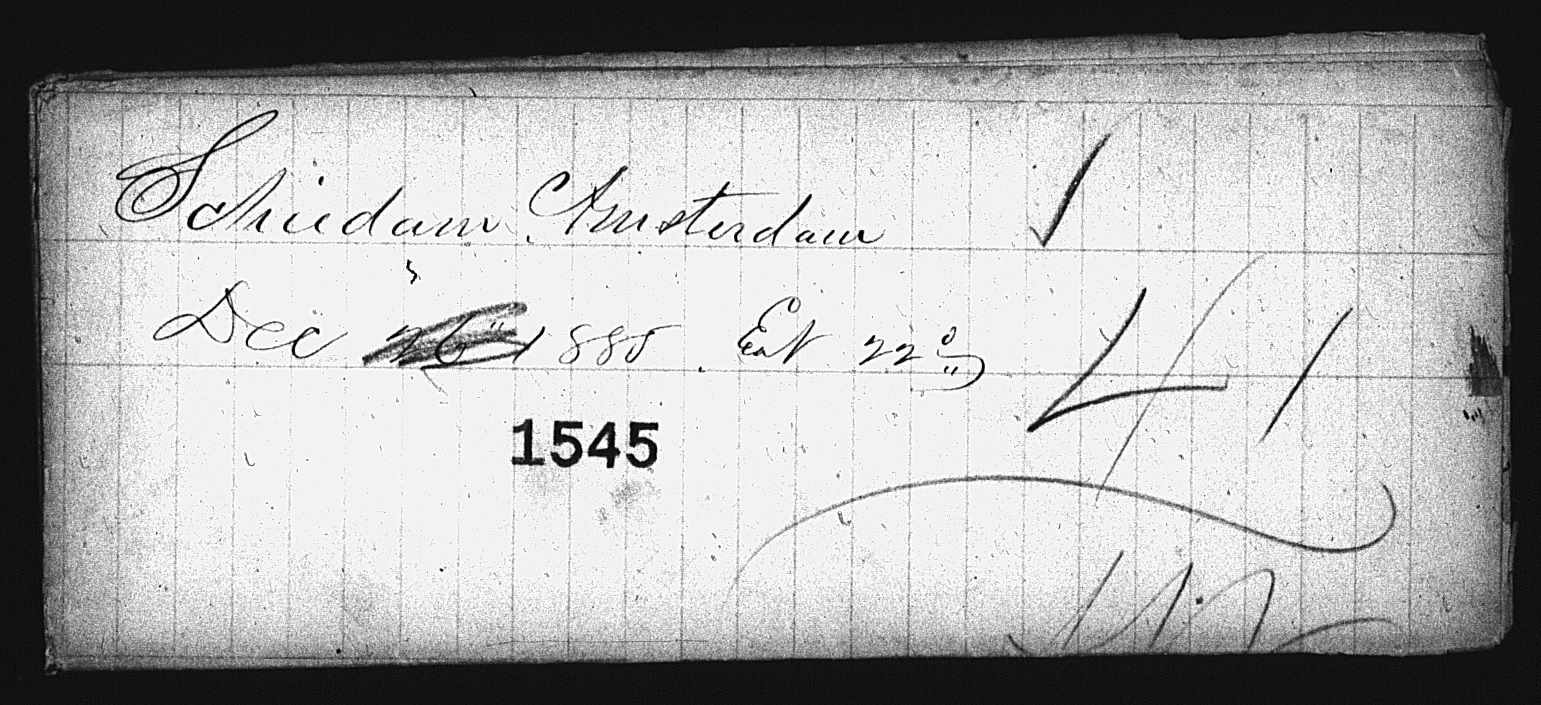 Schiedam Amsterdam
Dec 26" 1885 Ent 22" 41
1545